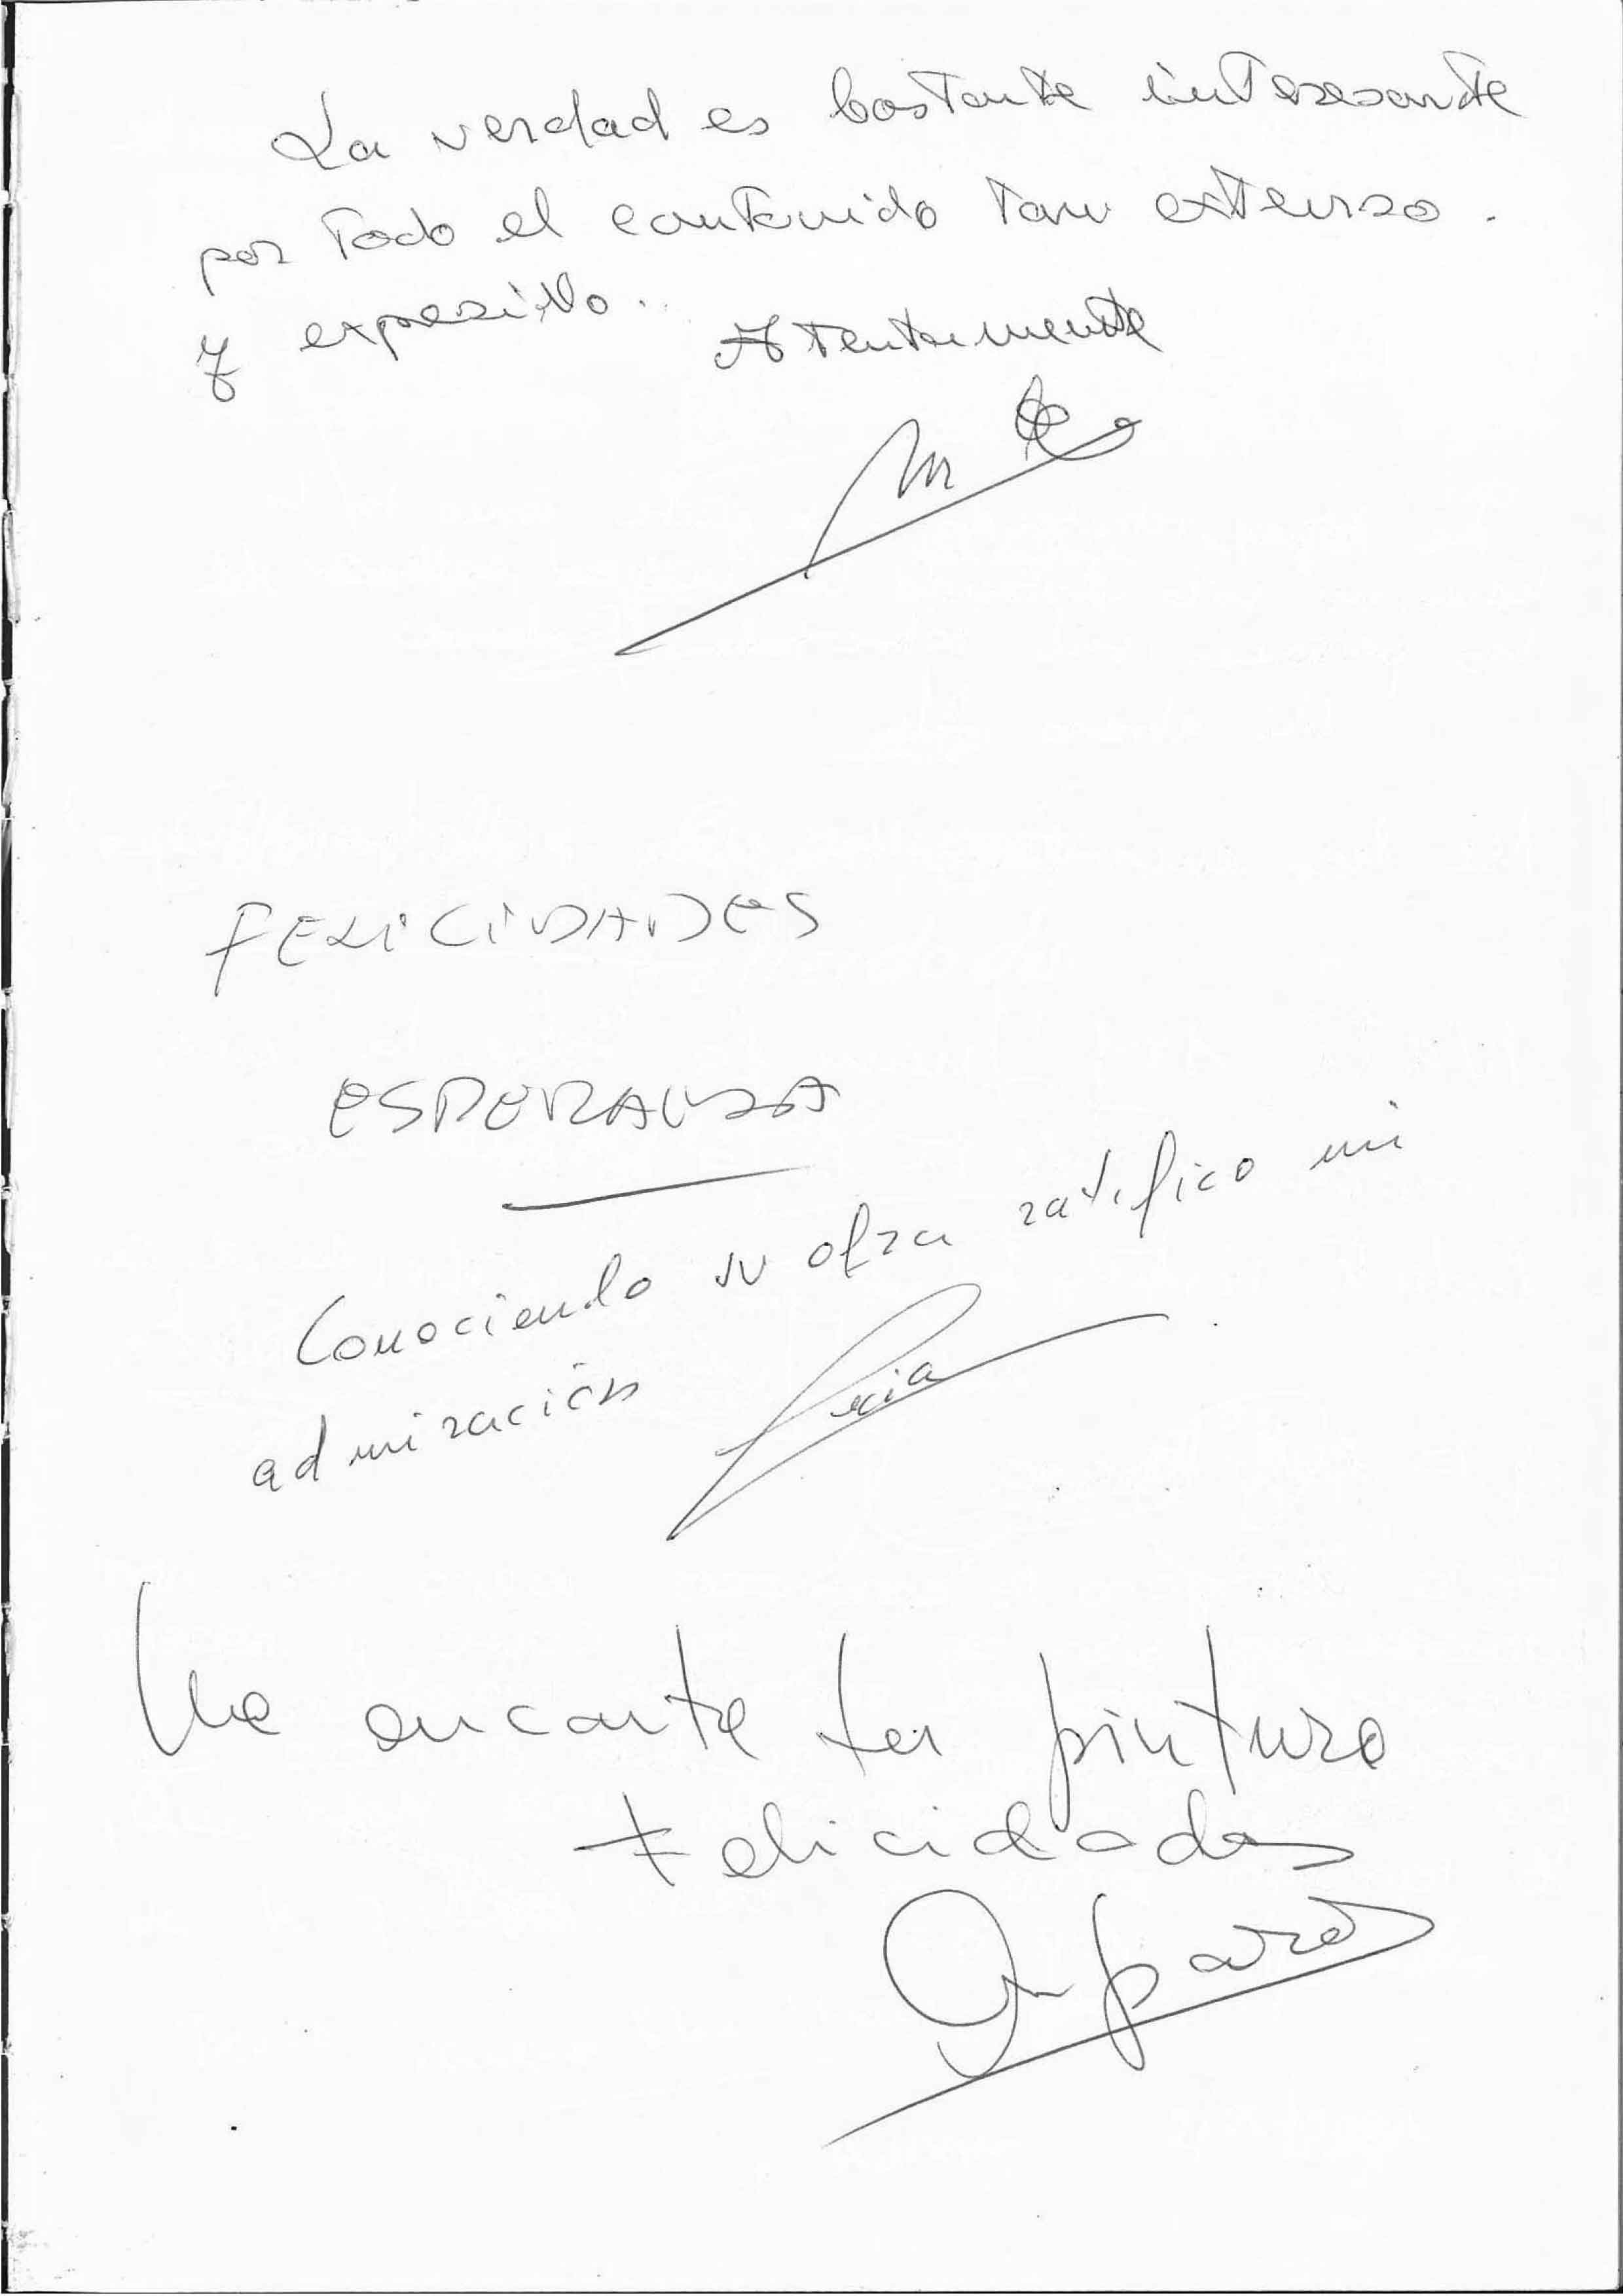 La verdad es bastante interesante
por todo el contenido tan extenso.
y expresivo.. Atentamente
FELICIDADES
ESPERANZA
Conociendo su obra ratifico mi
admiración
Lucia
Me encanta tu pintura
Felicidades
Amparo